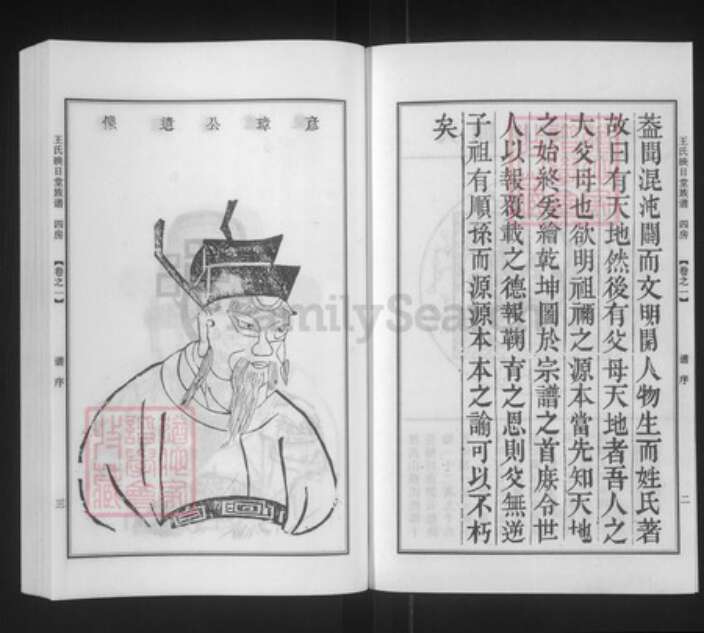 王氏映日堂族谱 四房 【卷之一】 谱序 二
蓋聞混沌闢而文明開人物生而姓氏著
故曰有天地然後有父母天地者吾人之
大父母也欲明祖禰之源本當先知天地
之始終爰繪乾坤圖於宗譜之首庻令世
人以報覆載之德報鞠育之恩則父無逆
子祖有順孫而源源本本之諭可以不朽
矣
彦璋公遺像
王氏映日堂族谱 四房 【卷之一】 谱序 三
FamilySearch